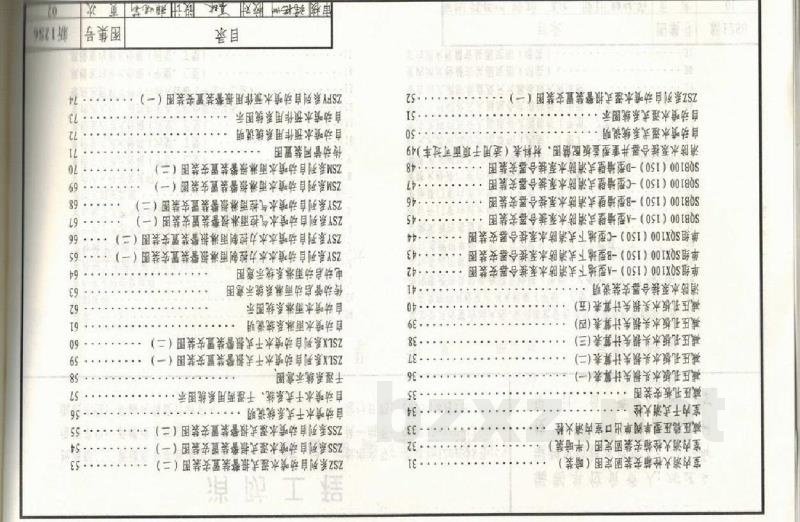 室内消火栓箱安装固定图(暗装) 31
室内消火栓箱安装固定图(半暗装) 32
减压稳压型单阀单出口室内消火栓 33
室内干式消火栓 34
减压孔板安装图 35
减压孔板水头损失计算表(一) 36
减压孔板水头损失计算表(二) 37
减压孔板水头损失计算表(三) 38
减压孔板水头损失计算表(四) 39
减压孔板水头损失计算表(五) 40
消防水泵接合器安装说明 41
单组SQX100(150)-A型地下式消防水泵接合器安装图 42
单组SQX100(150)-B型地下式消防水泵接合器安装图 43
单组SQX100(150)-C型地下式消防水泵接合器安装图 44
SQB100(150)-A型墙壁式消防水泵接合器安装图 45
SQB100(150)-B型墙壁式消防水泵接合器安装图 46
SQB100(150)-C型墙壁式消防水泵接合器安装图 47
SQB100(150)-D型墙壁式消防水泵接合器安装图 48
消防水泵接合器井重型盖板配筋图、材料表(适用于顶面可过车) 49
自动喷水湿式系统说明 50
自动喷水湿式系统图示 51
ZSZ系列自动喷水湿式报警装置安装图(一) 52
ZSZ系列自动喷水湿式报警装置安装图(二) 53
ZSS系列自动喷水湿式报警装置安装图(一) 54
ZSS系列自动喷水湿式报警装置安装图(二) 55
自动喷水干式系统说明 56
自动喷水干式系统、干湿两用系统图示 57
干湿系统示意图 58
ZSLX系列自动喷水干式报警装置安装图(一) 59
ZSLX系列自动喷水干式报警装置安装图(二) 60
自动喷水雨淋系统说明 61
自动喷水雨淋系统图示 62
传动管启动雨淋系统示意图 63
电动启动雨淋系统示意图 64
ZSY系列自动喷水水力控制雨淋报警装置安装图(一) 65
ZSY系列自动喷水水力控制雨淋报警装置安装图(二) 66
ZSY系列自动喷水气控雨淋报警装置安装图(一) 67
ZSY系列自动喷水气控雨淋报警装置安装图(二) 68
ZSM系列自动喷水雨淋报警装置安装图(一) 69
ZSM系列自动喷水雨淋报警装置安装图(二) 70
传动管网装置图 71
自动喷水预作用系统说明 72
自动喷水预作用系统图示 73
ZSPY系列自动喷水预作用报警装置安装图(一) 74
目录 图集号 新12S6
审核 校对 设计 页次 02
bzxz.net